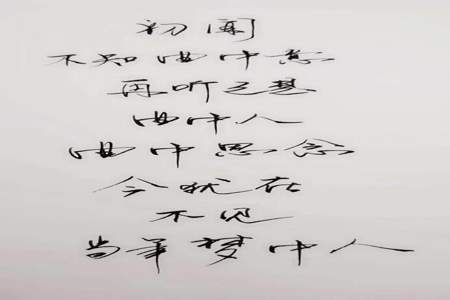 初闻
不知曲中意
再听已是
曲中人
曲中思念
今犹在
不见
当年梦中人